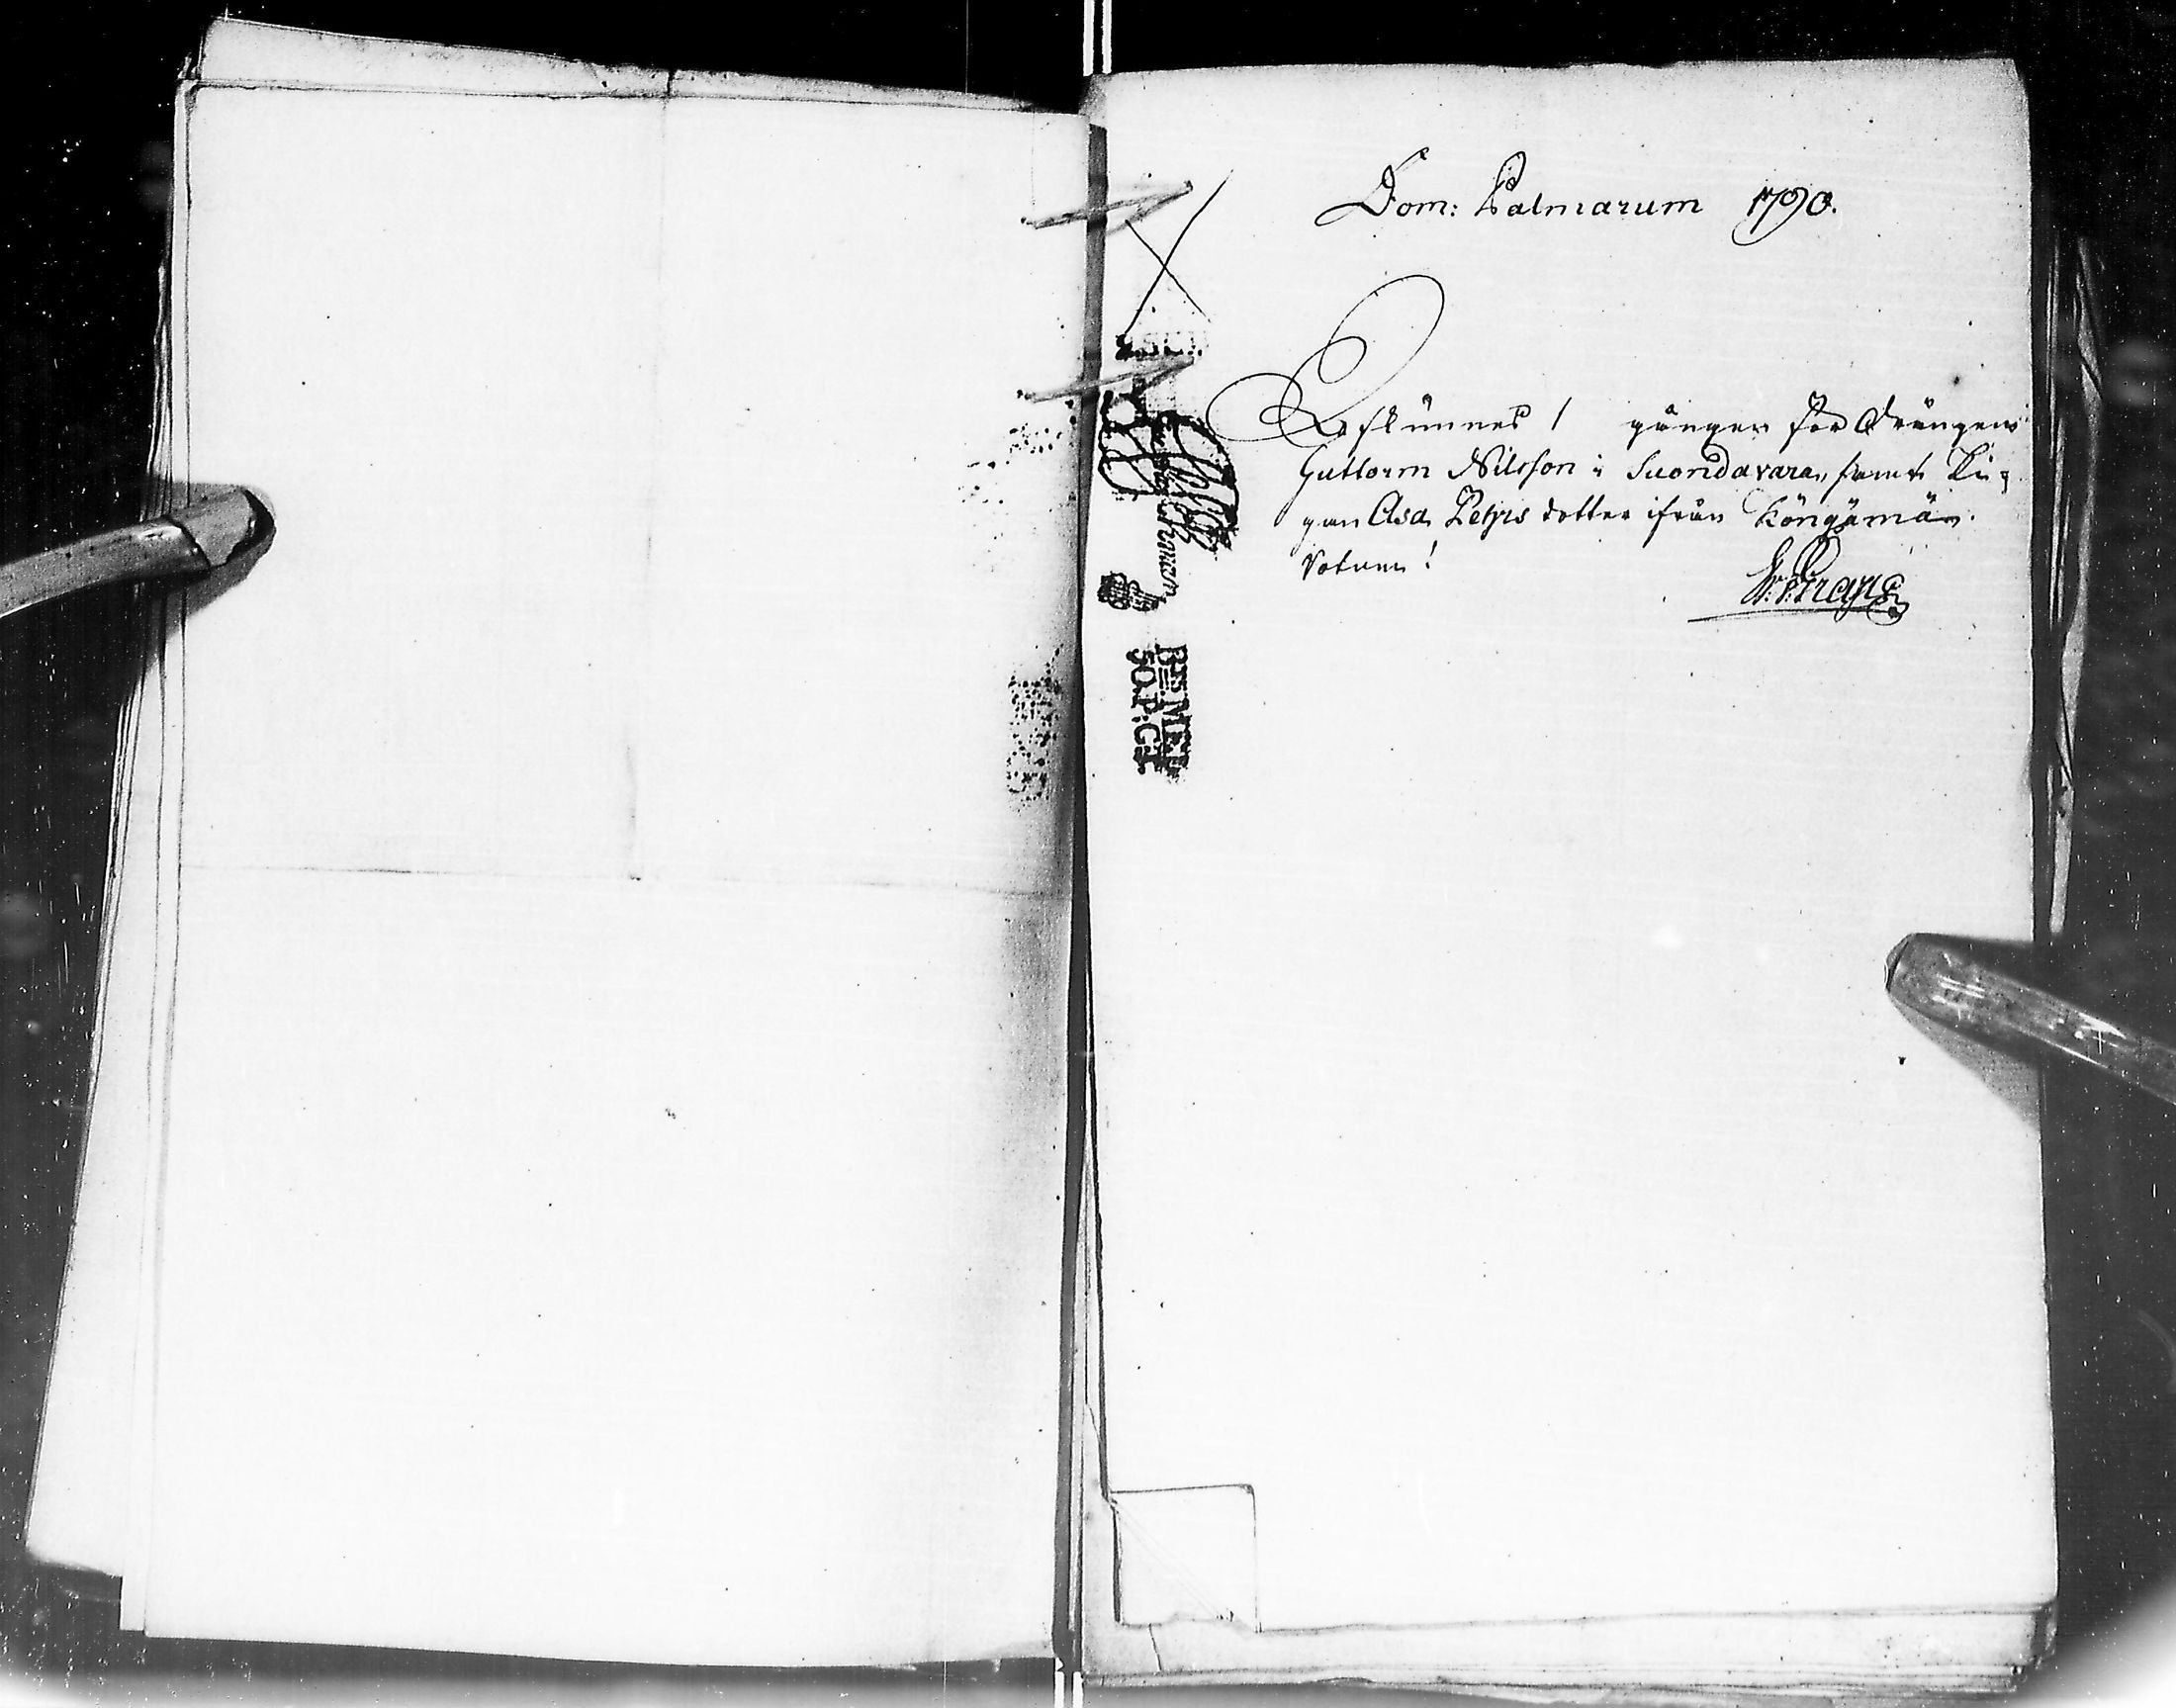 Dom: Palmarum 1790.
Afkunnes 1 gången för Drängen
Guttorm Nilsson i Suondavara, samt Pi-
gan Asa Pehrs dotter ifrån Köngämä.
Vatum!
BTS MET
50. P: GT